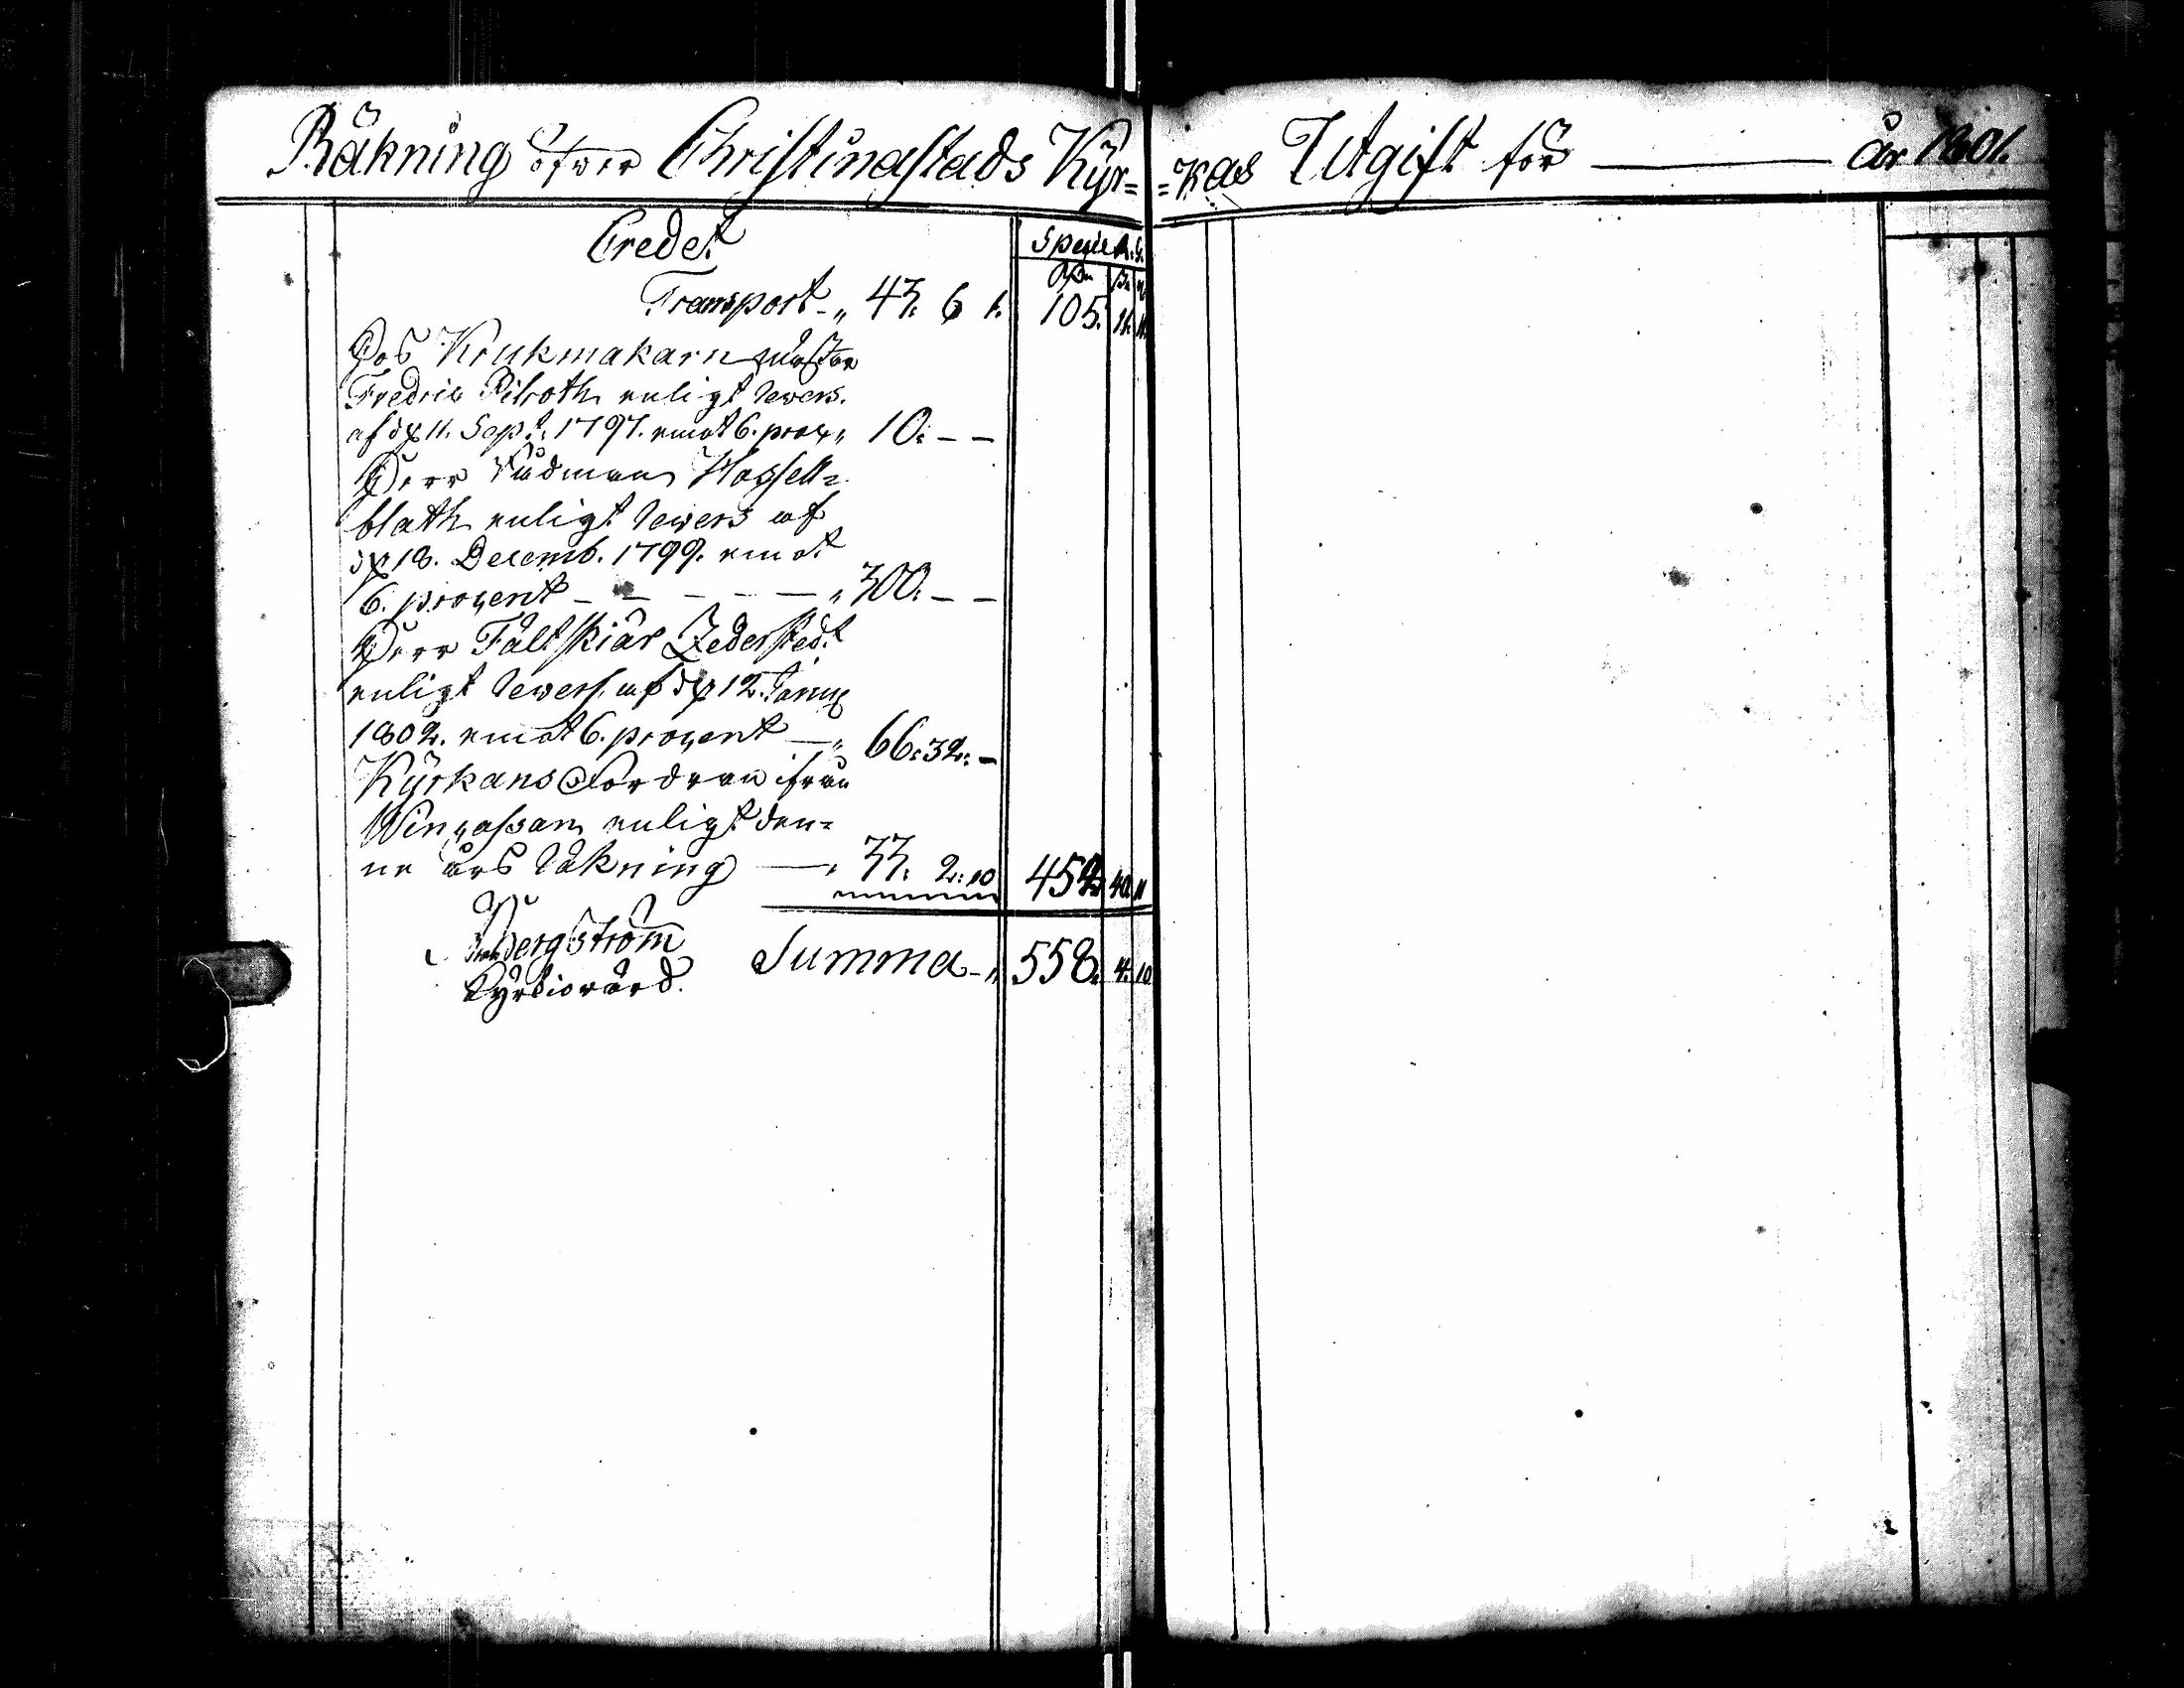 Räkning öfver Christinæstads Kyr= =kas Utgift för ——— år 1801.
Credet
Specie R. G.
Transport „ 43. 6 1. 105. 11. 11
Hos Krukmakarn mäster
Fredric Pilroth enligt Revers.
af d. 11. Sept: 1797. emot 6. proc „ 10. — —
Herr Rådman Hassell=
blath enligt Revers af
d. 18. Decemb. 1799. emot
6. procent — — — — — „ 300. — —
Herr Fältskiär Zederstedt
enligt Revers. af d. 12. Janu
1802. emot 6. procent — „ 66: 32: —
Kyrkans Fordran ifrån
Wincassan enligt den=
ne års Räkning — „ 33. 2: 10 452 40. 11
Bergström
Summa „ 558. 4. 10
Kyrkiovärd.